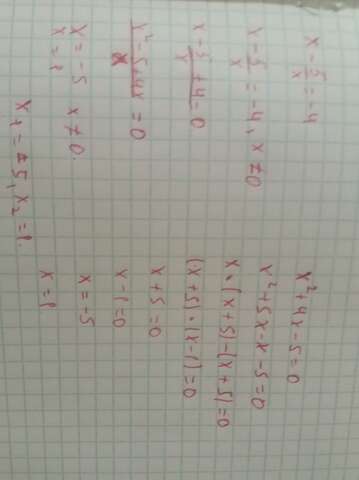 x - 5/x = -4
x - 5/x = -4, x ≠ 0
x - 5/x + 4 = 0
x² - 5 + 4x / x = 0
x = -5 x ≠ 0.
x = 1
x₁ = -5, x₂ = 1.
x² + 4x - 5 = 0
x² + 5x - x - 5 = 0
x · (x + 5) - (x + 5) = 0
(x + 5) · (x - 1) = 0
x + 5 = 0
x - 1 = 0
x = -5
x = 1